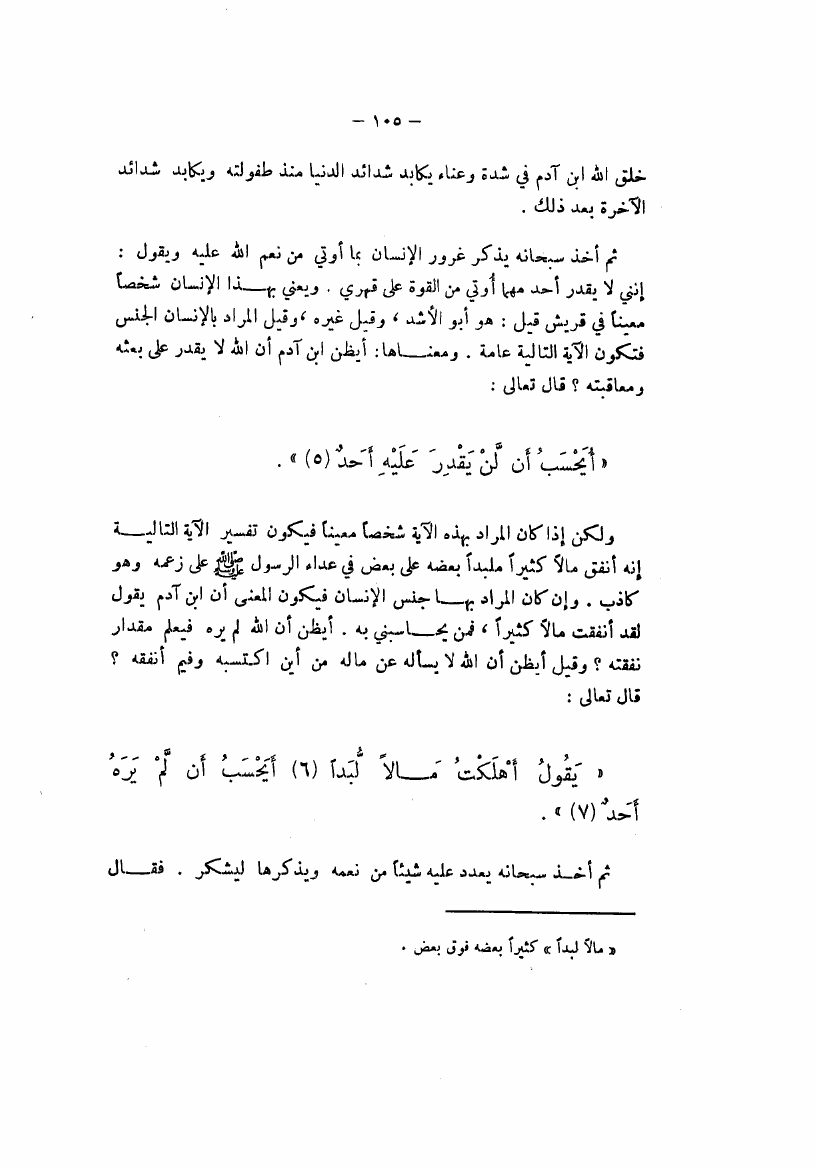 — ١٠٥ —
خلق الله ابن آدم في شدة وعناء يكابد شدائد الدنيا منذ طفولته ويكابد شدائد
الآخرة بعد ذلك .
ثم أخذ سبحانه يذكر غرور الإنسان بما أوتي من نعم الله عليه ويقول :
إنني لا يقدر أحد مهما أوتي من القوة على قهري . ويعني بهـــذا الإنسان شخصاً
معيناً في قريش قيل : هو أبو الأشد ، وقيل غيره ، وقيل المراد بالإنسان الجنس
فتكون الآية التالية عامة . ومعنـــاها : أيظن ابن آدم أن الله لا يقدر على بعثه
ومعاقبته ؟ قال تعالى :
« أَيَحْسَبُ أن لَّنْ يَقْدِرَ عَلَيْهِ أَحَدٌ (٥) » .
ولكن إذا كان المراد بهذه الآية شخصاً معيناً فيكون تفسير الآية التاليـــة
إنه أنفق مالاً كثيراً ملبداً بعضه على بعض في عداء الرسول ﷺ على زعمه وهو
كاذب . وإن كان المراد بهـــا جنس الإنسان فيكون المعنى أن ابن آدم يقول
لقد أنفقت مالاً كثيراً ، فمن يحـــاسبني به . أيظن أن الله لم يره فيعلم مقدار
نفقته ؟ وقيل أيظن أن الله لا يسأله عن ماله من أين اكتسبه وفيم أنفقه ؟
قال تعالى :
« يَقُولُ أَهْلَكْتُ مَـــالاً لُّبَداً (٦) أَيَحْسَبُ أن لَّمْ يَرَهُ
أَحَدٌ (٧) » .
ثم أخـــذ سبحانه يعدد عليه شيئاً من نعمه ويذكرها ليشكر . فقـــال
« مالاً لبداً » كثيراً بعضه فوق بعض .